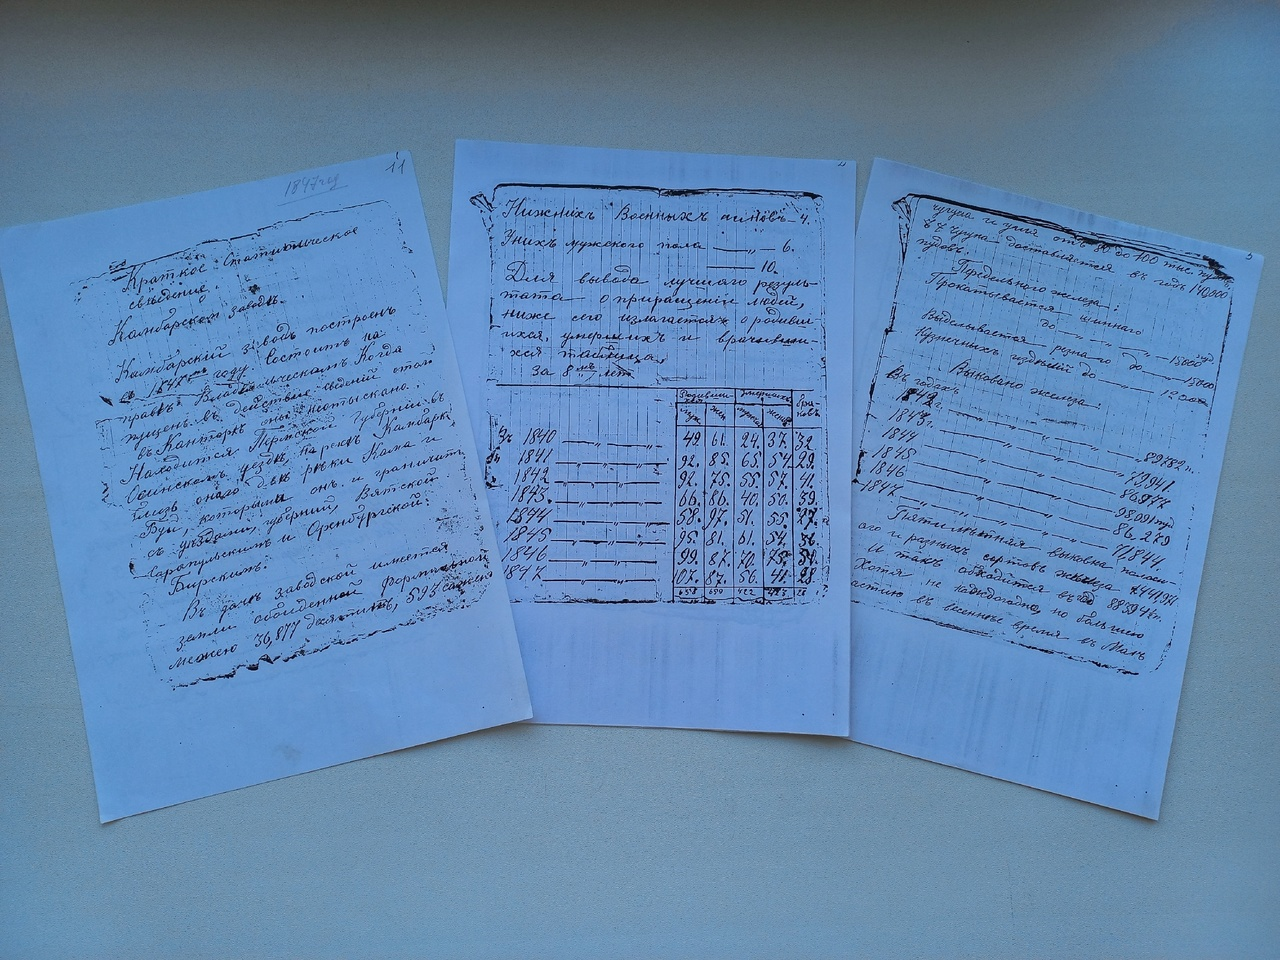 11
1847 г.
Краткое Статистическое
сведение.
Камбарской заводъ.
Камбарскій заводъ построенъ
году. Состоитъ на
правѣ Владѣльческомъ. Когда
пущенъ въ действіе сведений этого
въ Канторѣ не отыскано.
Находится Пермской Губерніи въ
Осинскомъ уездѣ на рекѣ Камбаркѣ
близь оного двѣ реки Кама и
Буй, которыми онъ и граничитъ
съ уездами, губерній, Вятской
Сарапульскимъ и Оренбургской
Бирскимъ.
Въ дачѣ заводской имеется
земли обойденной формальной
межею 36,877 десятинъ, 593 сажени
Нижнихъ Военныхъ чиновъ — 4.
У нихъ мужского пола — „ — 6.
— 10.
Для вывода лучшаго резуль-
тата о приращеніи людей,
ниже сего излагается о родивш
ихся, умершихъ и
хся таблица,
За 8 мь лет
мужс жен женс
Въ 1840 — „ — „ — 49. 61. 24. 37. 32.
1841 — „ — „ — 92. 85. 65. 54. 29.
1842 — „ — „ — 92. 75. 55. 57. 41.
1843. — „ — „ — 66. 86. 40. 50. 39.
1844 — „ — „ — 58. 97. 51. 55. 27.
1845 — „ — „ — 95. 81. 61. 54. 36.
1846 — „ — „ — 99. 87. 70. 75. 54.
1847 — „ — „ — 107. 87. 56. 41. 28.
658 659 422 423
чугуна и угля отъ 80 до 100 тыс. пудъ,
чугуна доставляется въ годъ 140,000
пудовъ.
Передельного железа:
Прокатывается шиннаго
до — „ — „ — 15000 пуд
Выделывается резнаго до — 15000
Кузнечныхъ изделій до — „ — 1200
Выковано железа:
Въ годахъ
1842 — „ — „ — 89782 п.
1843 г. — „ — „ — 79941.
1844 — „ — „ — 86977
1845 — „ — „ — 98091 пуд
1846 — „ — „ — 86,279
1847 — „ — „ — 71844
Пятилетняя выковка полосн-
ого и разныхъ сортовъ железа
И такъ обходится въ годъ 88594 п.
Хотя не каждогодно, но большею
астию въ весеннее время въ Маѣ